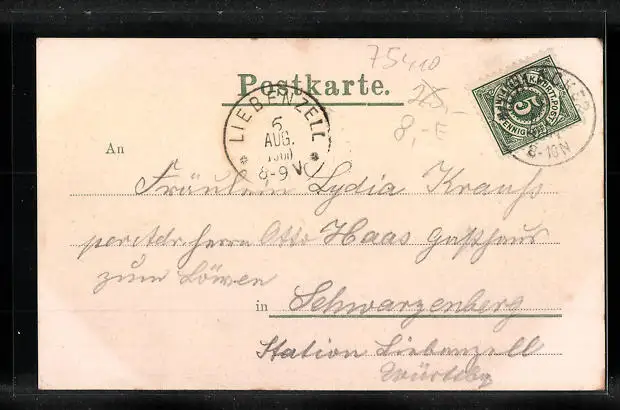 75410
Postkarte.
25.-
8,-E
LIEBENZELL
5
AUG.
1900
8-9V
K. WÜRTT. POST
5
PFENNIG
8-10N
An
Fräulein Lydia Krauss
per Adr. Herrn Otto Haas Gasthaus
zum Löwen
in Schwarzenberg
Station Liebenzell
Württbg